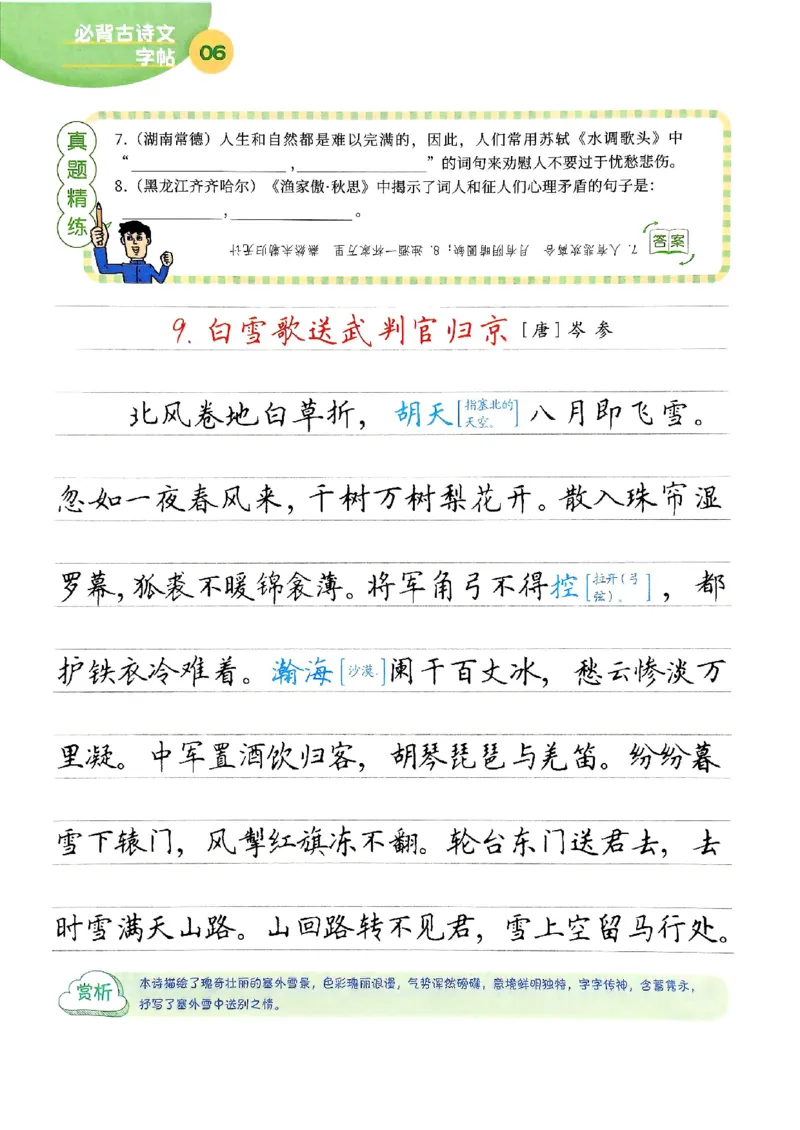 必背古诗文
字帖 06
真题精练
7.（湖南常德）人生和自然都是难以完满的，因此，人们常用苏轼《水调歌头》中
“____________，____________”的词句来劝慰人不要过于忧愁悲伤。
8.（黑龙江齐齐哈尔）《渔家傲·秋思》中揭示了词人和征人们心理矛盾的句子是：
____________，____________。
答案
7. 人有悲欢离合 月有阴晴圆缺；8. 浊酒一杯家万里 燕然未勒归无计
9. 白雪歌送武判官归京 [唐] 岑参
北风卷地白草折，胡天[指塞北的天空。]八月即飞雪。
忽如一夜春风来，千树万树梨花开。散入珠帘湿
罗幕，狐裘不暖锦衾薄。将军角弓不得控[拉开（弓弦）。]，都
护铁衣冷难着。瀚海[沙漠。]阑干百丈冰，愁云惨淡万
里凝。中军置酒饮归客，胡琴琵琶与羌笛。纷纷暮
雪下辕门，风掣红旗冻不翻。轮台东门送君去，去
时雪满天山路。山回路转不见君，雪上空留马行处。
赏析
本诗描绘了瑰奇壮丽的塞外雪景，色彩瑰丽浪漫，气势浑然磅礴，意境鲜明独特，字字传神，含蓄隽永，
抒写了塞外雪中送别之情。